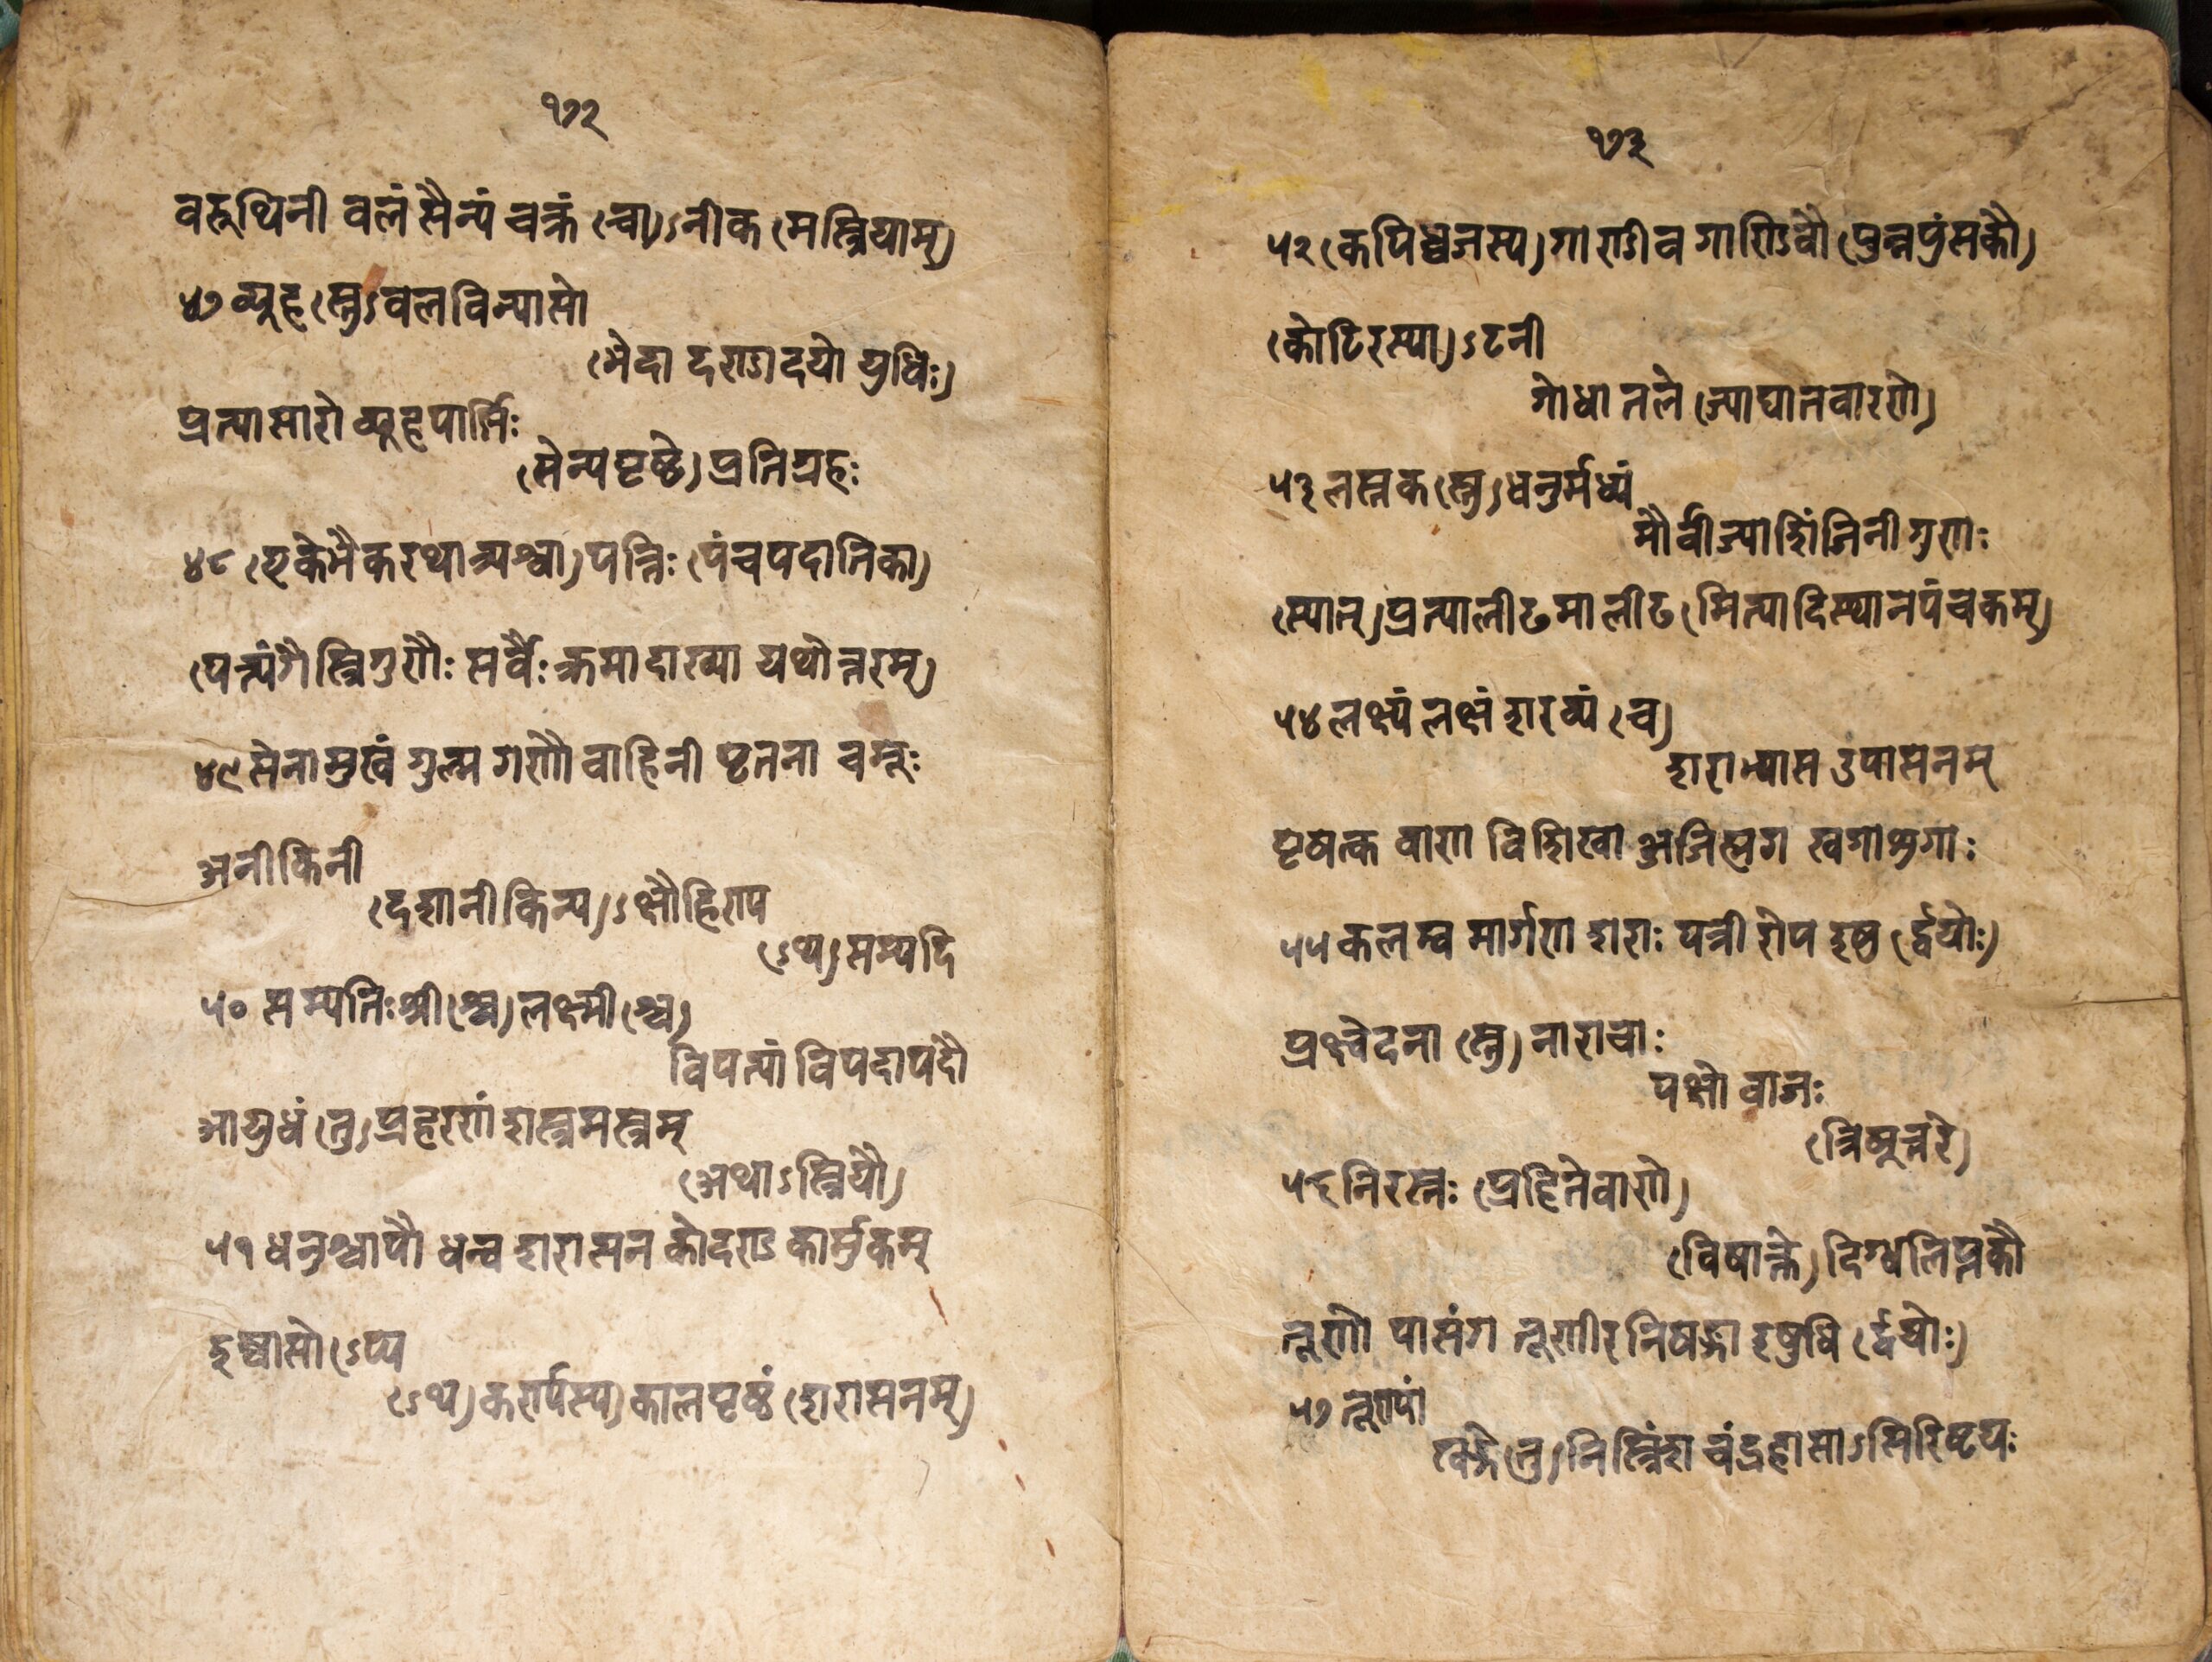 १७२
वरूथिनी वलं सैन्यं चक्रं (चा)ऽनीक (मस्त्रियाम्)
४७ व्यूह (स्तु) वलविन्यासो
(भेदा दण्डादयो युधिः)
प्रत्यासारो व्यूहपार्ष्णिः
(सैन्यपृष्ठे) प्रतिग्रहः
४८ (एकेभैकरथात्र्यश्वा) पत्तिः (पंचपदातिका)
(पत्त्यंगैस्त्रिगुणैः सर्वैः क्रमादाख्या यथोत्तरम्)
४९ सेनामुखं गुल्म गणौ वाहिनी पृतना चमूः
अनीकिनी
(दशानीकिन्य)ऽक्षौहिण्य
(ऽथ) सम्पदि
५० सम्पतिः श्री (श्च) लक्ष्मी (श्च)
विपत्यां विपदापदौ
आयुधं (तु) प्रहरणं शस्त्रमस्त्रम्
(अथाऽस्त्रियौ)
५१ धनुश्चापौ धन्व शरासन कोदण्ड कार्मुकम्
इष्वासो (ऽप्य
(ऽथ) कर्णस्य) कालपृष्ठं (शरासनम्)
१७३
५२ (कपिध्वजस्य) गाण्डीव गाण्डिवौ (पुन्नपुंसकौ)
(कोटिरस्या)ऽटनी
गोधा तले (ज्याघातवारणे)
५३ लस्तक (स्तु) धनुर्मध्यं
मौर्वीज्याशिंजिनी गुणः
(स्यात्) प्रत्यालीढमालीढ (मित्यादिस्थानपंचकम्)
५४ लक्ष्यं लक्षं शरव्यं (च)
शराभ्यास उपासनम्
पृषत्क वाण विशिखा अजिह्मग खगाशुगाः
५५ कलम्व मार्गण शराः पत्री रोप इषु (र्द्वयोः)
प्रक्ष्वेदना (स्तु) नाराचाः
पक्षो वाजः
(त्रिषूत्तरे)
५६ निरस्तः (प्रहितेवाणे)
(विषाक्ते) दिग्धलिप्तकौ
तूणो पासंग तूणीर निषङ्गा इषुधि (र्द्वयोः)
५७ तूण्यां
खड्गे (तु) निस्त्रिंश चंद्रहासाऽसिरिष्टयः